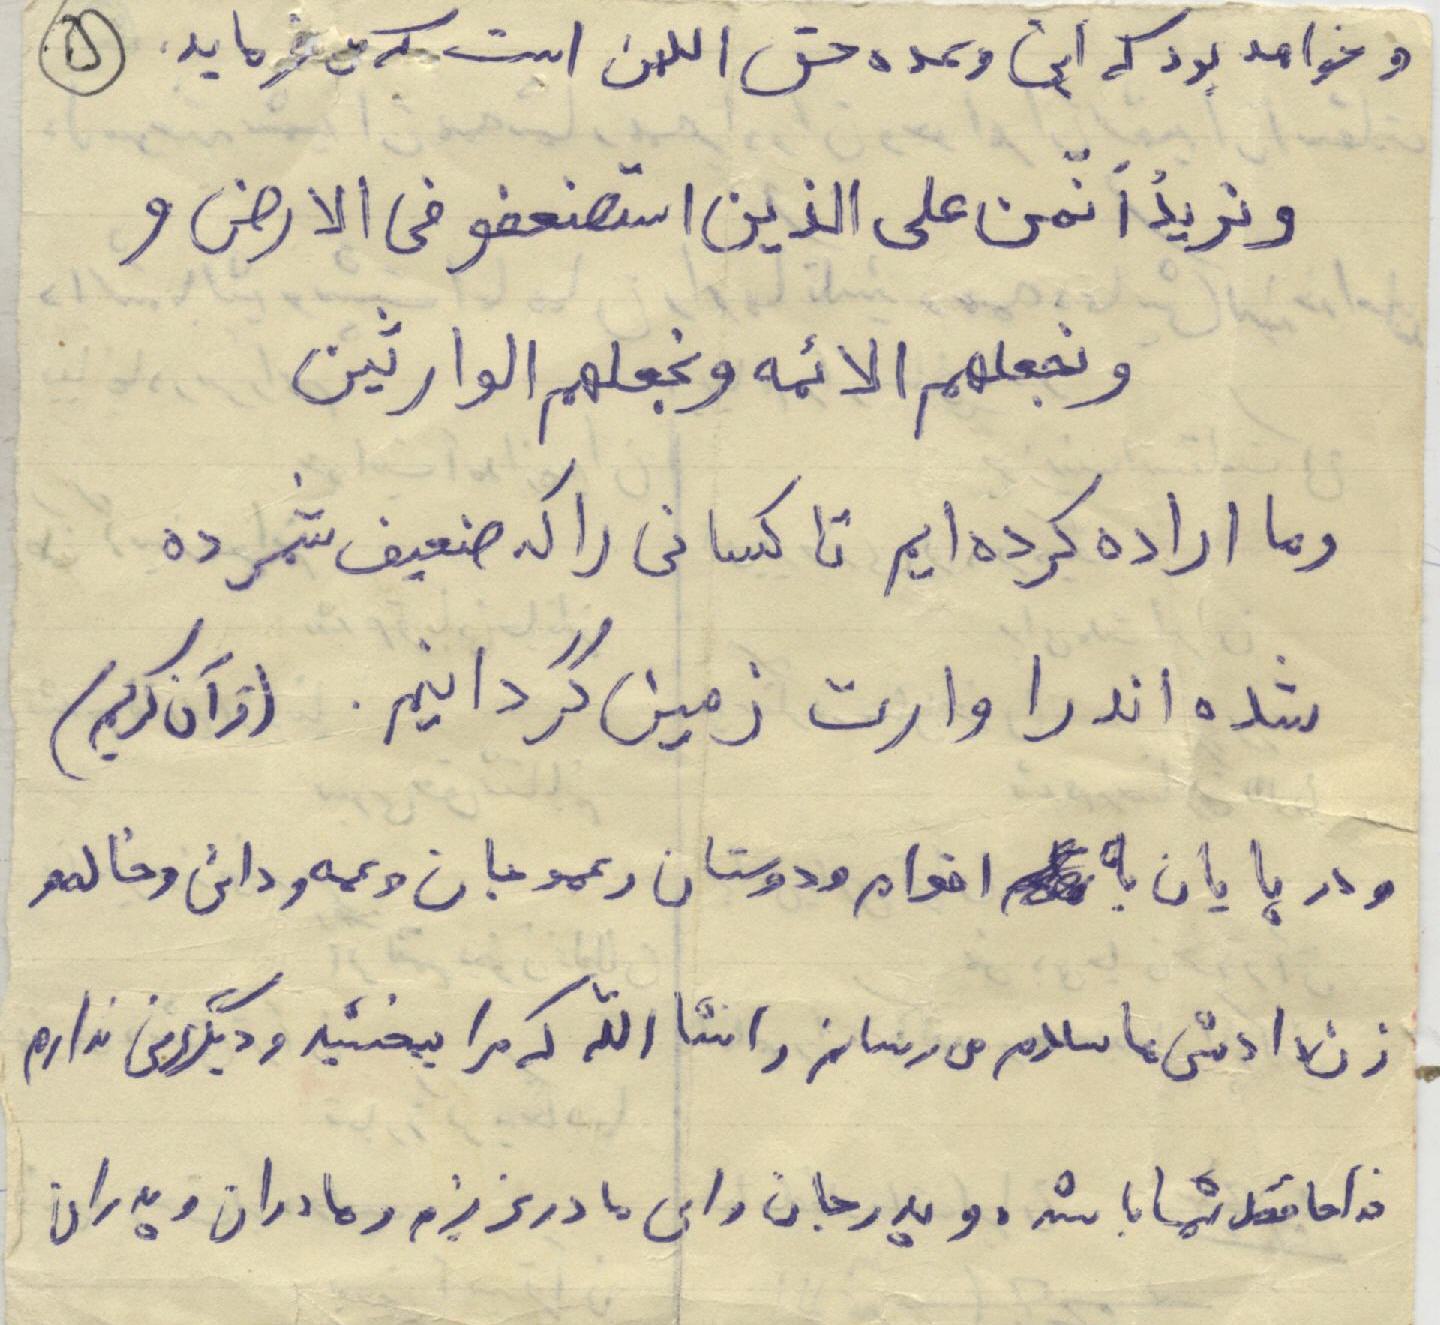 و خواهد بود که این وعده حق اللهن است که می فرماید. ۵
و نریدُ أنّمن علی الذین استضعفو فی الارض و
و نجعلهم الائمه و نجعلهم الوارثین
و ما اراده کرده ایم تا کسانی را که ضعیف شمرده
شده اند را وارث زمین گردانیم. (قرآن کریم)
و در پایان به اقوام و دوستان و عمو جان و عمه و دائی و خاله و
زن دادش ها سلام می رسانم و انشا اللّه که مرا ببخشید و دیگر عرضی ندارم
خداحافظ شما باشد و پدر جان و ای مادر عزیزم و مادران و پدران